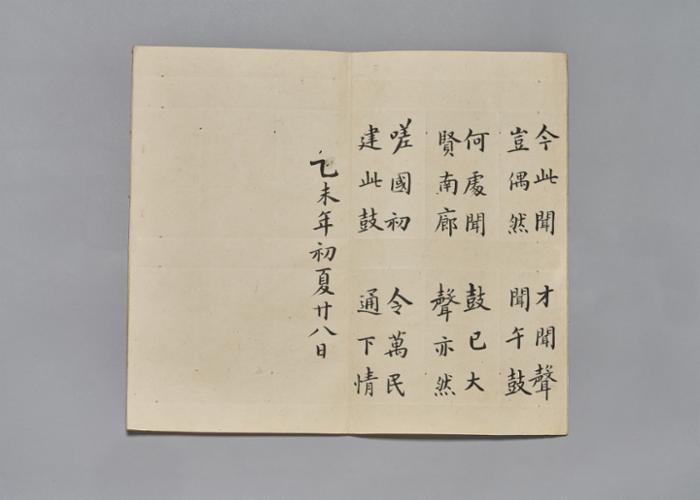 今此聞
豈偶然
才聞聲
聞午鼓
何處聞
賢南廊
鼓已大
聲亦然
嗟國初
建此鼓
令萬民
通下情
乙未年初夏廿八日